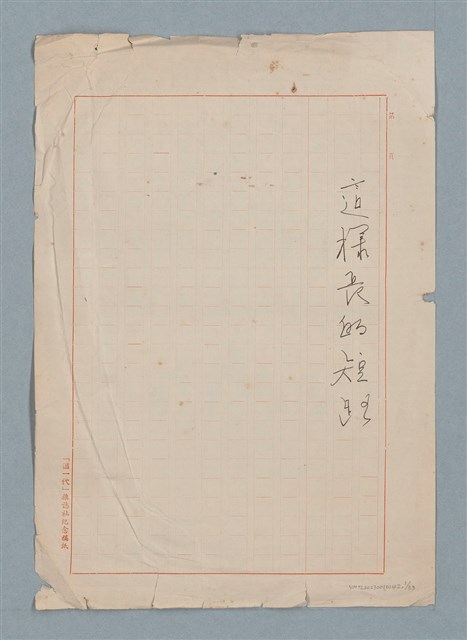 這樣長的短路
「這一代」雜誌社紀念稿紙